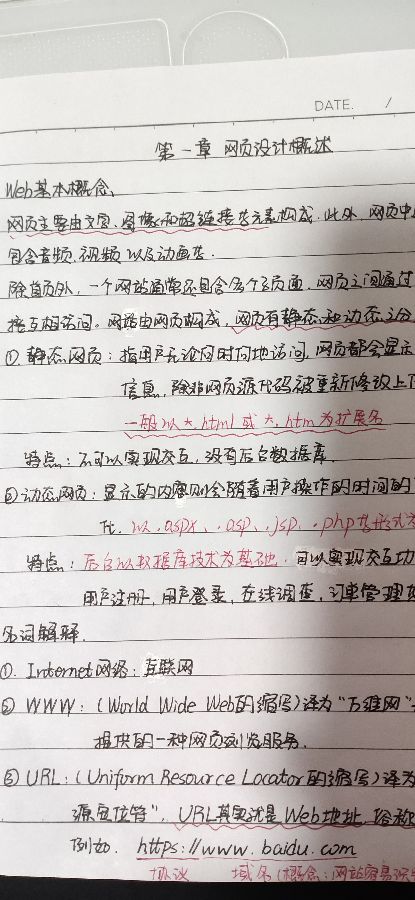 DATE. /
第一章 网页设计概述
Web基本概念、
网页主要由文字、图像和超链接等元素构成.此外,网页中
包含音频、视频以及动画等.
除首页外,一个网站通常还包含多个子页面,网页之间通过
接互相访问。网站由网页构成,网页有静态和动态之分
①.静态网页:指用户无论何时何地访问,网页都会显示
信息,除非网页源代码被重新修改上
一般以*.html或*.htm为扩展名
特点:不可以实现交互,没有后台数据库.
②动态网页:显示的内容则会随着用户操作的时间的
化.以.aspx、.asp、.jsp、.php等形式
特点:后台以数据库技术为基础.可以实现交互功
用户注册,用户登录,在线调查,订单管理
名词解释.
①.Internet网络:互联网
② WWW:(World Wide Web的缩写)译为"万维网"
提供的一种网页浏览服务.
③ URL:(Uniform Resource Locator的缩写)译为
源定位符",URL其实就是Web地址,俗称
例如.https://www.baidu.com
协议 域名(概念:网站容易